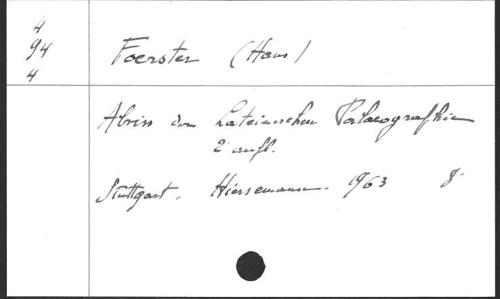 4
94
4
Foerster (Hans)
Abriss der Lateinischen Palaeographie
2 aufl.
Stuttgart. Hiersemann. 1963 8°